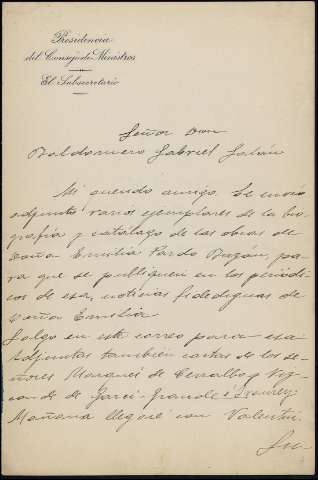 Presidencia
del Consejo de Ministros
El Subsecretario
Señor Don
Baldomero Gabriel Galán
Mi querido amigo. Le envío
adjunto varios ejemplares de la bio
grafía y catálogo de las obras de
Doña Emilia Pardo Bazán, pa
ra que se publiquen en los periódi
cos de esa, noticias fidedignas de
Doña Emilia
Salgo en este correo para esa
Adjuntas también cartas de los se
ñores Marqués de Cerralbo y Viz
conde de Garci-Grande é
Mañana llegaré con Valentín.
Su